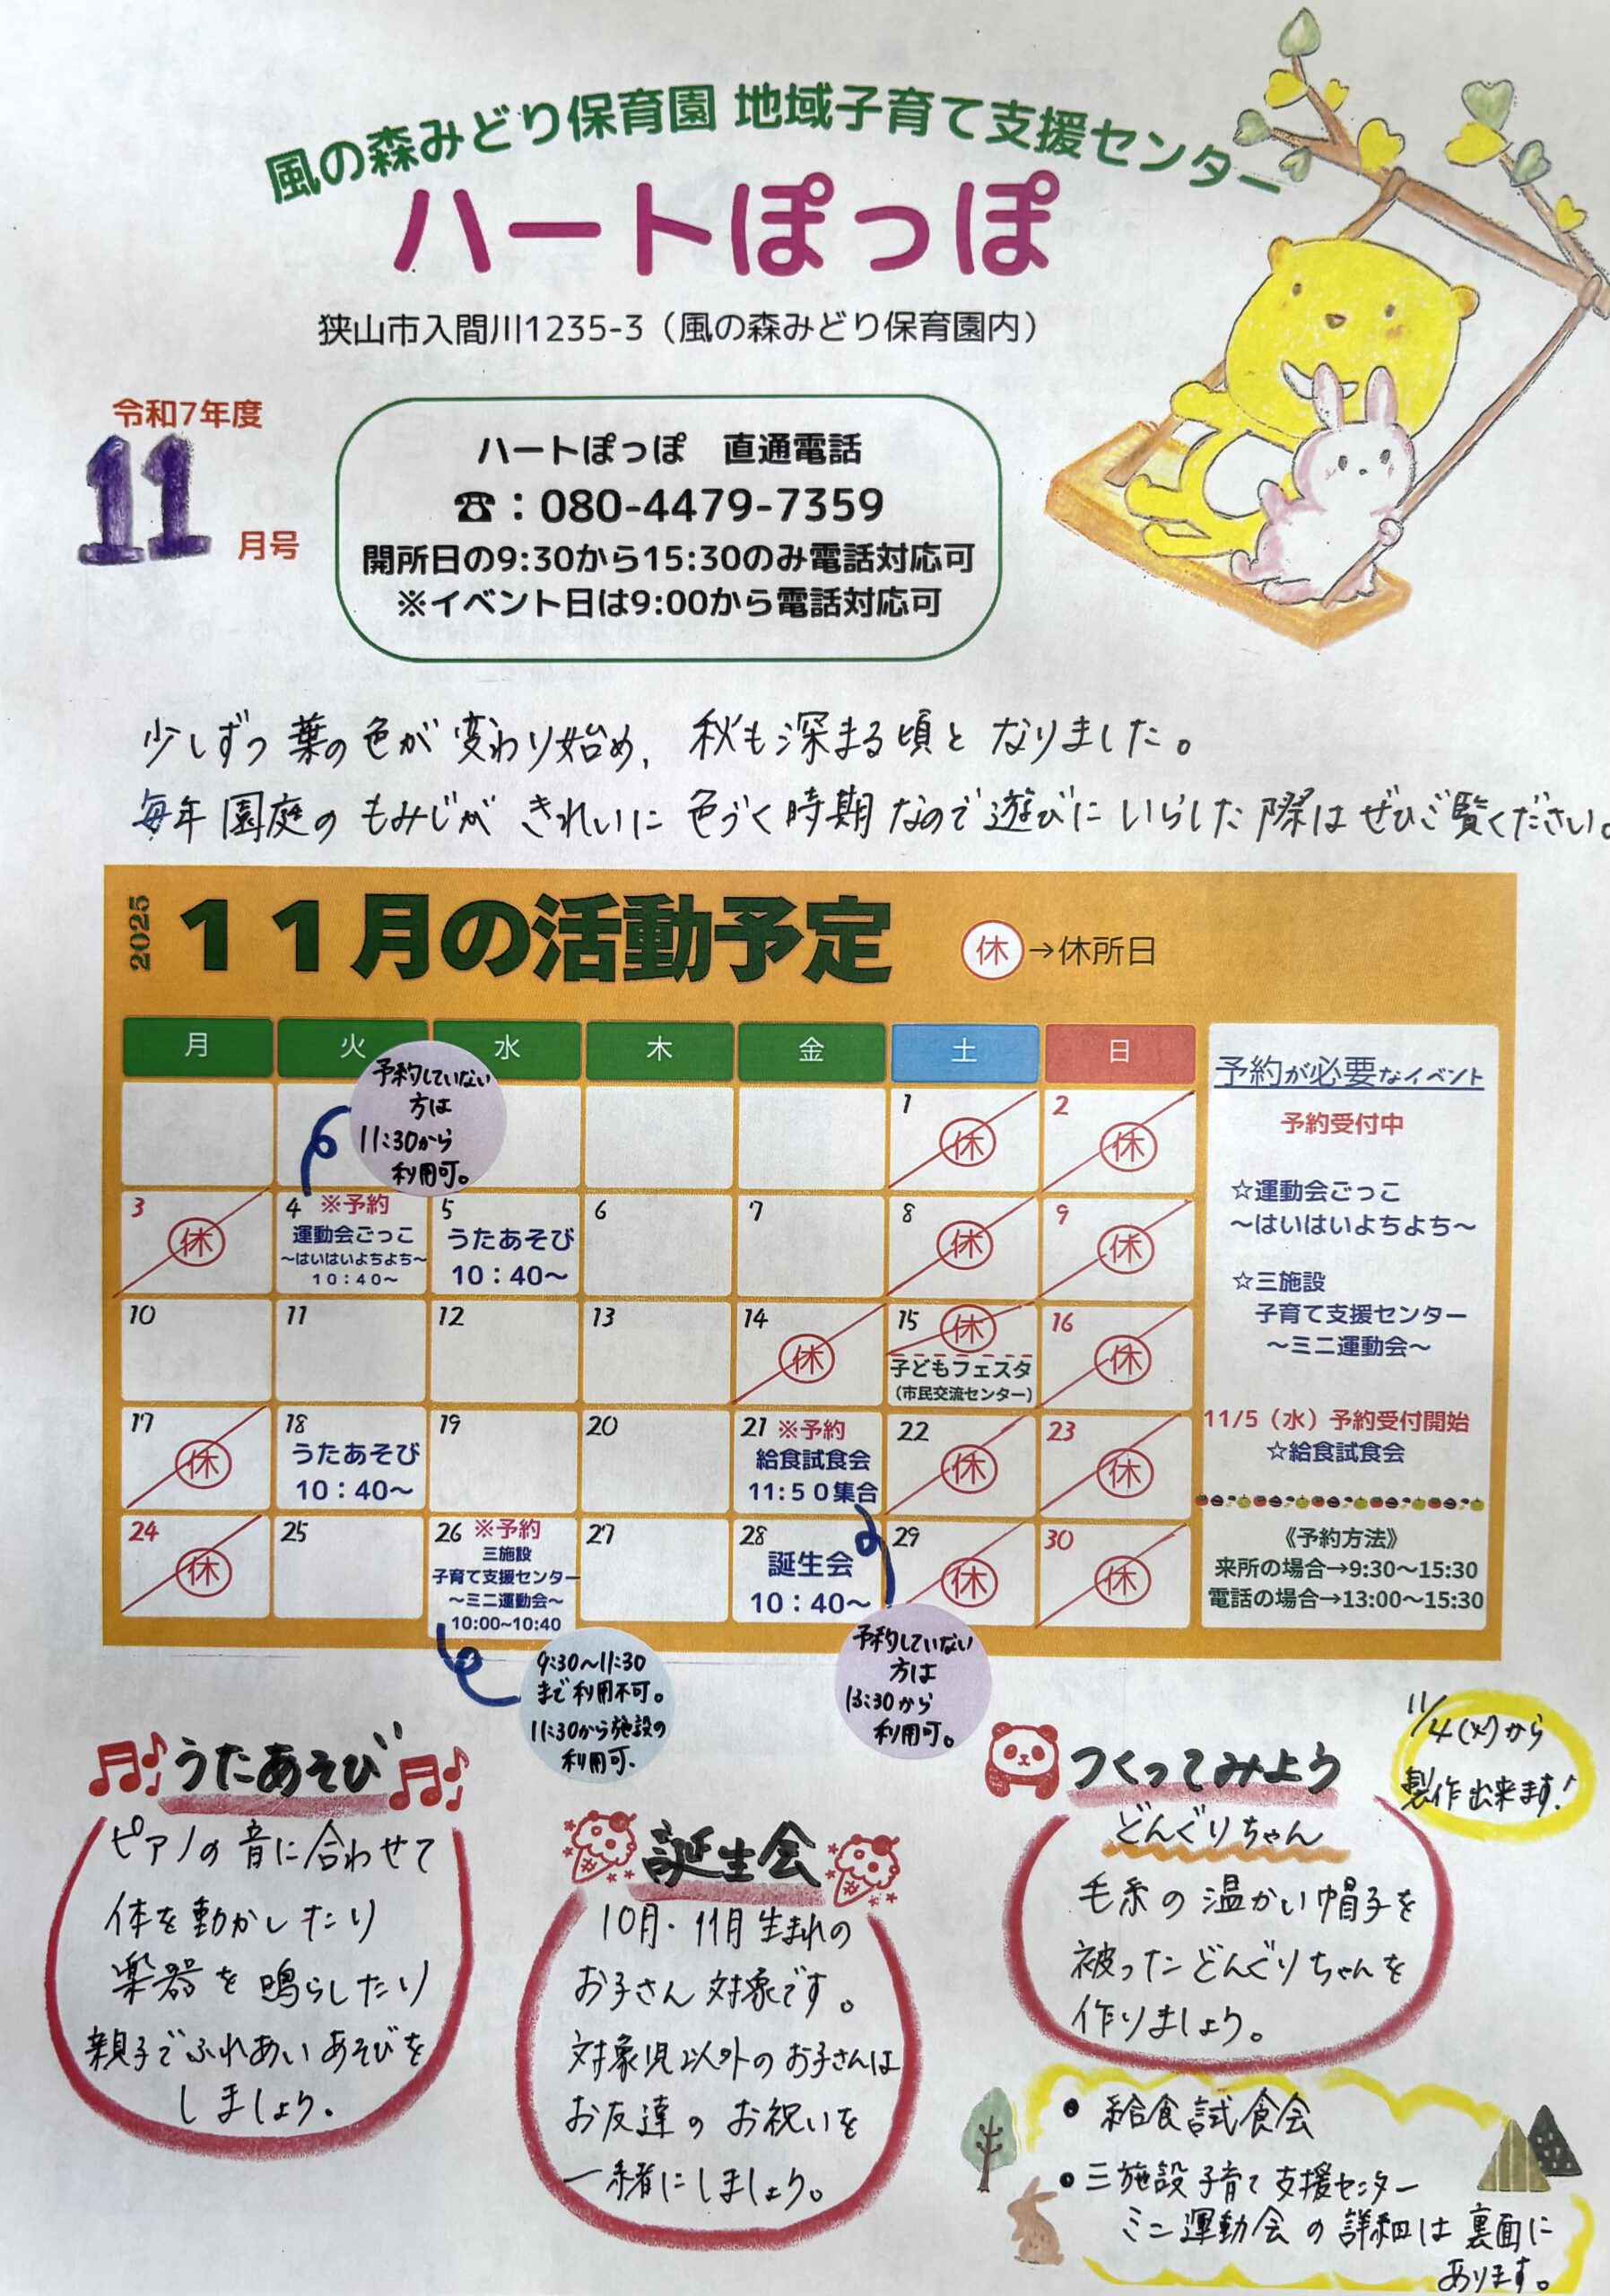 風の森みどり保育園 地域子育て支援センター
ハートぽっぽ
狭山市入間川1235-3（風の森みどり保育園内）
令和7年度
11
月号
ハートぽっぽ　直通電話
☎：080-4479-7359
開所日の9:30から15:30のみ電話対応可
※イベント日は9:00から電話対応可
少しずつ葉の色が変わり始め、秋も深まる頃となりました。
毎年園庭のもみじがきれいに色づく時期なので遊びにいらした際はぜひご覧ください。
2025
11月の活動予定
休→休所日
月 火 水 木 金 土 日
予約していない
方は
11:30から
利用可。
1 休
2 休
3 休
4 ※予約
運動会ごっこ
～はいはいよちよち～
10：40～
5
うたあそび
10：40～
6
7
8 休
9 休
10
11
12
13
14 休
15 休
子どもフェスタ
（市民交流センター）
16 休
17 休
18
うたあそび
10：40～
19
20
21 ※予約
給食試食会
11:50集合
22 休
23 休
24 休
25
26 ※予約
三施設
子育て支援センター
～ミニ運動会～
10:00~10:40
27
28
誕生会
10：40～
29 休
30 休
予約が必要なイベント
予約受付中
☆運動会ごっこ
～はいはいよちよち～
☆三施設
子育て支援センター
～ミニ運動会～
11/5（水）予約受付開始
☆給食試食会
《予約方法》
来所の場合→9:30～15:30
電話の場合→13:00～15:30
9:30～11:30
まで利用不可。
11:30から施設の
利用可.
予約していない
方は
13:30から
利用可。
うたあそび
ピアノの音に合わせて
体を動かしたり
楽器を鳴らしたり
親子でふれあいあそびを
しましょう.
誕生会
10月・11月生まれの
お子さん対象です。
対象児以外のお子さんは
お友達のお祝いを
一緒にしましょう。
つくってみよう
どんぐりちゃん
毛糸の温かい帽子を
被ったどんぐりちゃんを
作りましょう。
11/4(火)から
製作出来ます!
・給食試食会
・三施設子育て支援センター
ミニ運動会の詳細は裏面に
あります。